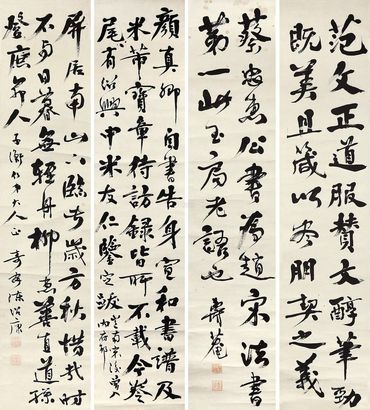 范文正道服贊文醇筆勁
既美且箴以盡朋契之義
蔡忠惠公書為趙宋法書
第一此玉局老語也
顏真卿自書告身宣和書譜及
米芾寶章待訪錄皆所不載今卷
尾有紹興中米友仁鑒定跋
屏居南山下臨此歲方秋惜哉時
不與日暮無輕舟柳惠善直道孫
登庶知人
大人正